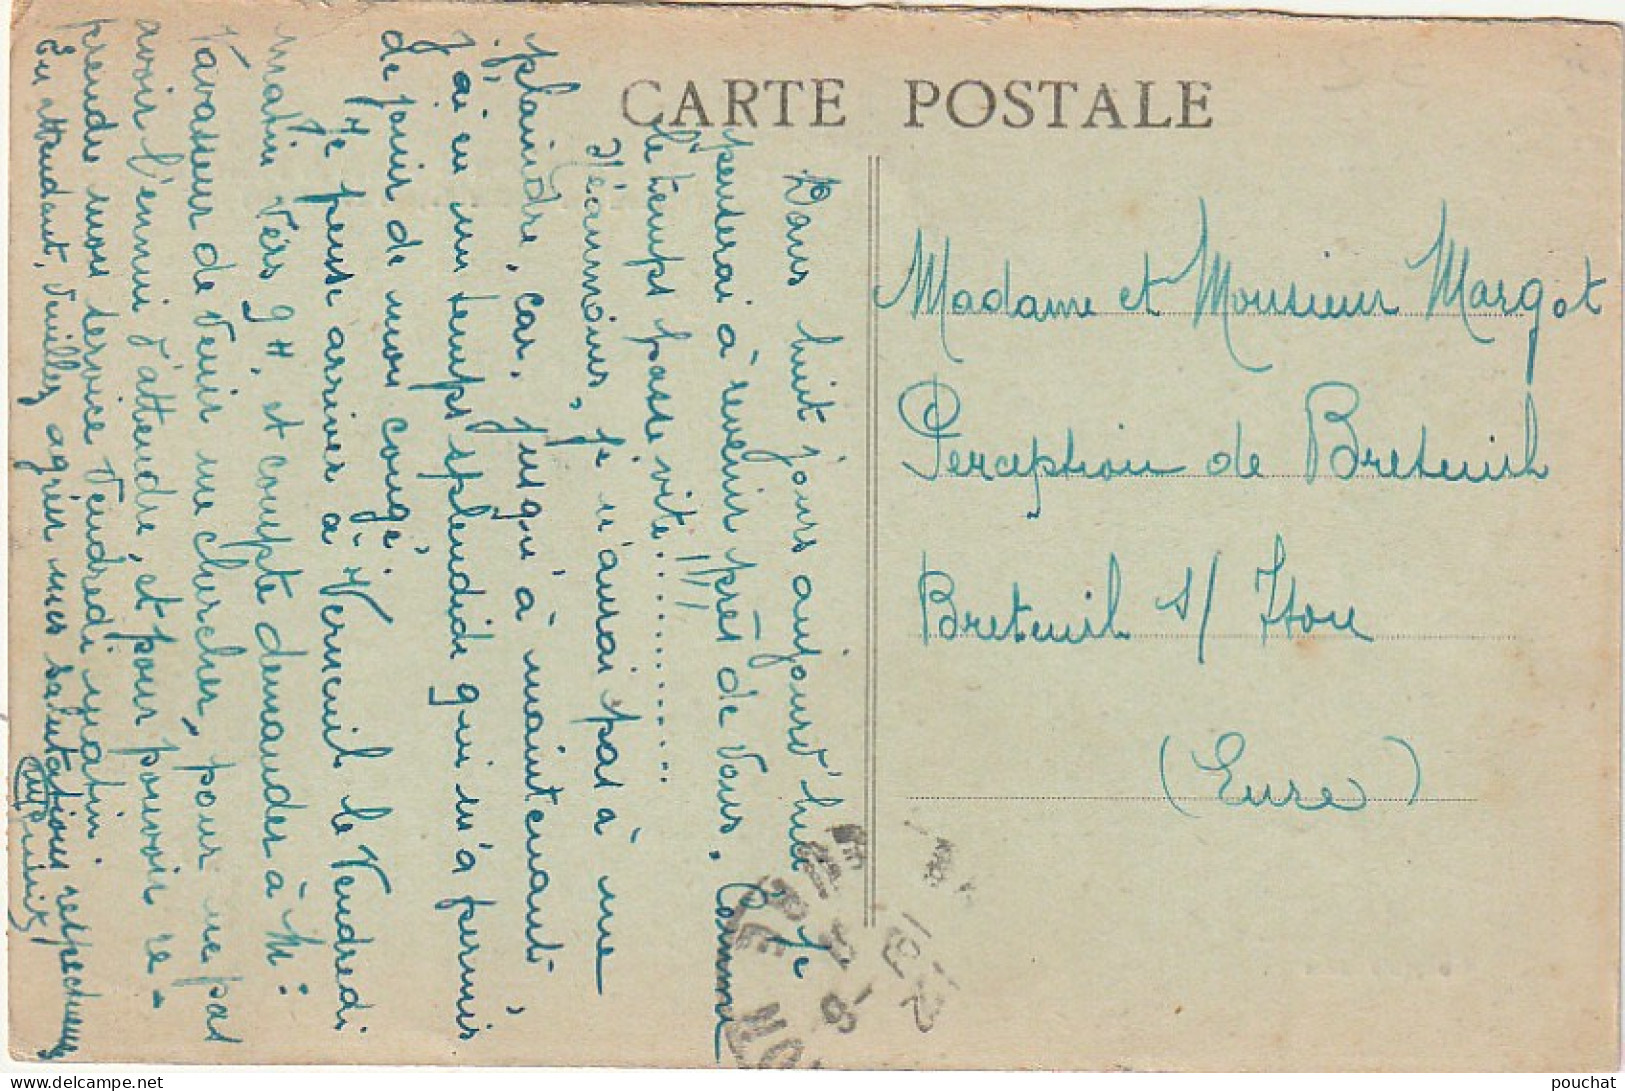 CARTE POSTALE
Dans huit jours aujourd'hui je
penserai à revenir près de Vous. Comme
le temps passe vite............!!!
Néanmoins, je n'aurai pas à me
plaindre, car, jusqu'à maintenant,
j'ai eu un temps splendide qui m'a permis
de jouir de mon congé.
Je pense arriver à Verneuil le Vendredi
matin vers 9 H. et compte demander à Mr
Vavasseur de Venir me chercher, pour ne pas
avoir l'ennui d'attendre, et pour pouvoir re-
prendre mon service Vendredi matin.
En attendant, Veuillez agréer mes salutations respectueuses
Madame et Monsieur Margot
Perception de Breteuil
Breteuil s/ Iton
(Eure)
pouchat